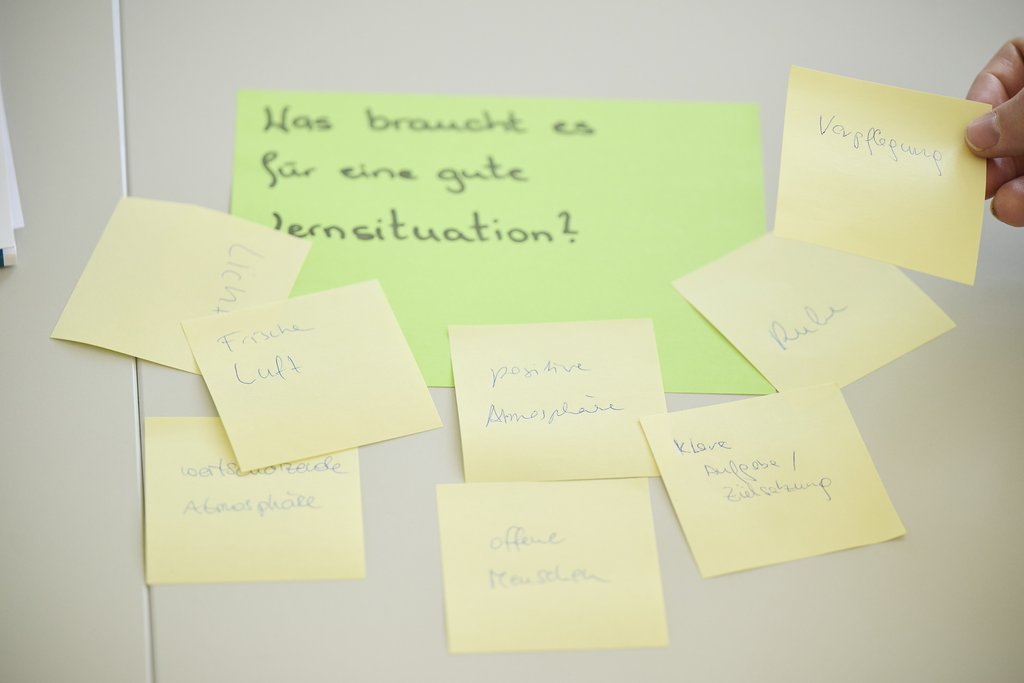 Was braucht es
für eine gute
Lernsituation?
Verpflegung
Licht
Ruhe
Frische
Luft
positive
Atmosphäre
klare
Aufgabe /
Zielsetzung
wertschätzende
Atmosphäre
offene
Menschen